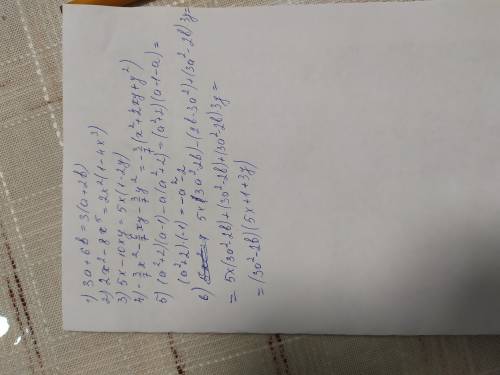 1) 3a+6b=3(a+2b)
2) 2x²-8x⁵=2x²(1-4x³)
3) 5x-10xy=5x(1-2y)
4) -3/7x²-6/7xy-3/7y²=-3/7(x²+2xy+y²)
5) (a²+2)(a-1)-a(a²+2)=(a²+2)(a-1-a)=
(a²+2)(-1)=-a²-2
6) 5x(3a²-2b)-(2b-3a²)+(3a²-2b)3y=
=5x(3a²-2b)+(3a²-2b)+(3a²-2b)3y=
=(3a²-2b)(5x+1+3y)